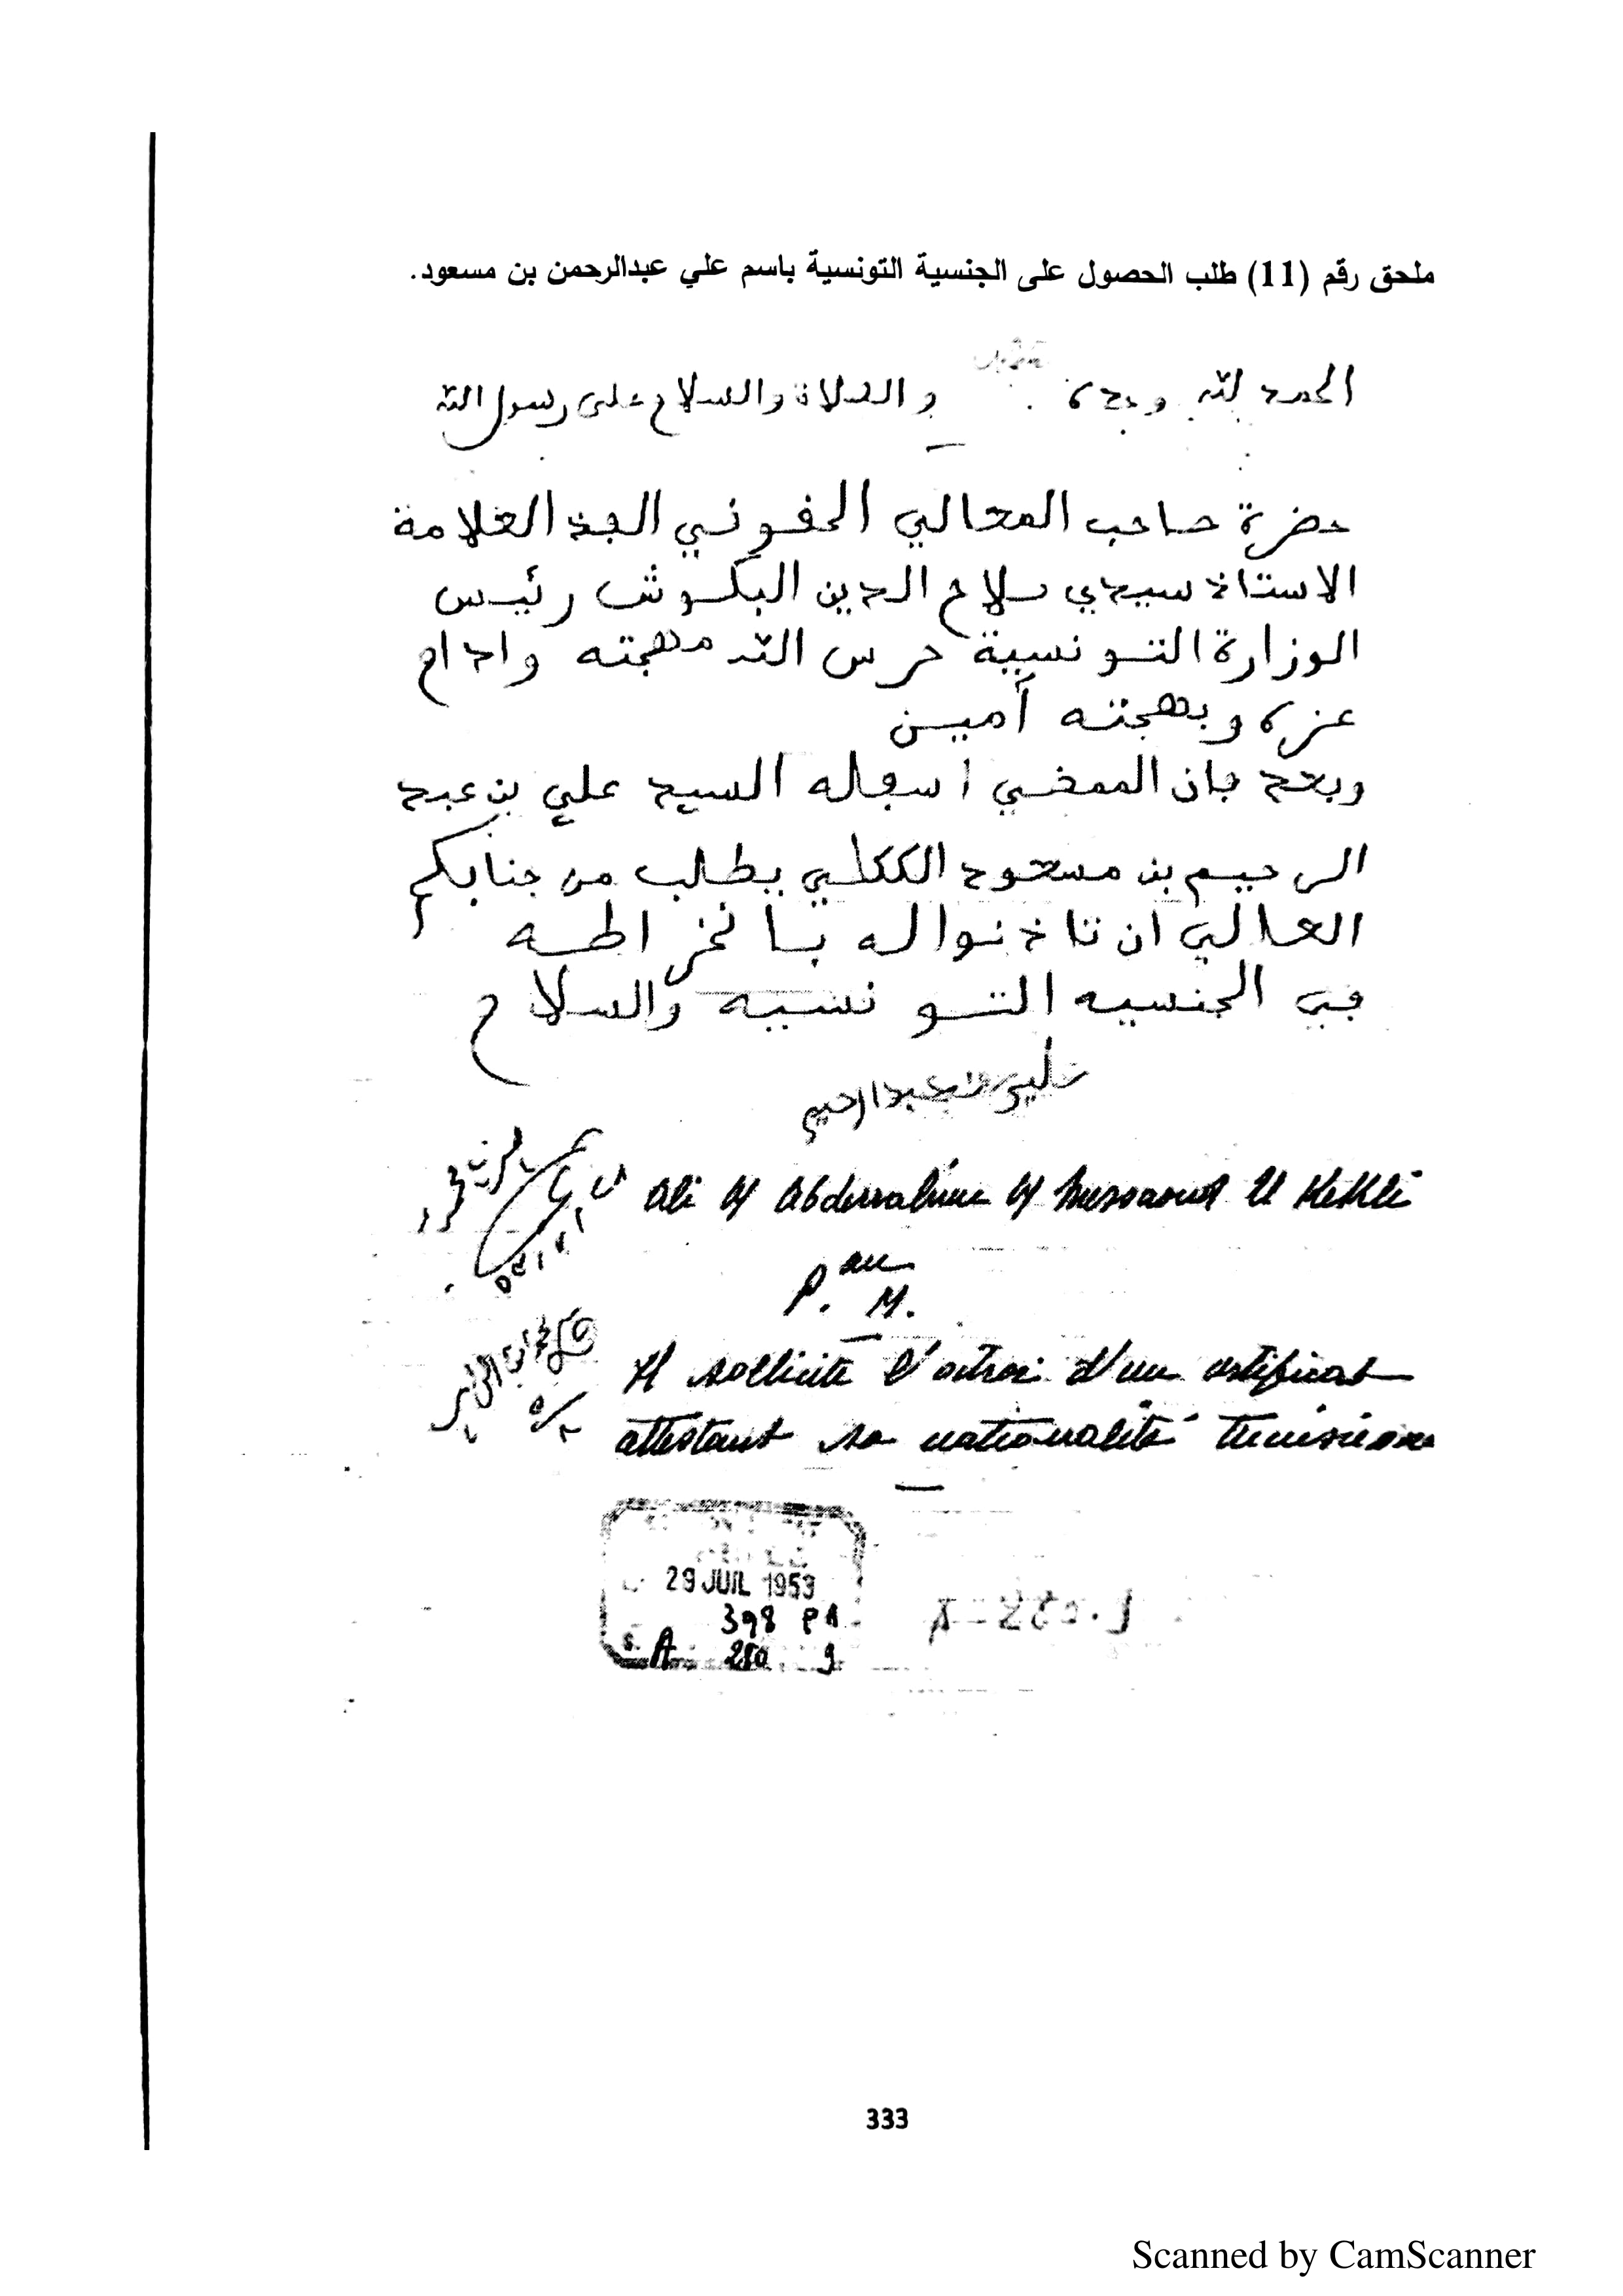 ملحق رقم (11) طلب الحصول على الجنسية التونسية باسم علي عبدالرحمن بن مسعود.
الحمد لله وحده والصلاة والسلام على رسول الله
حضرة صاحب المعالي الحقوني الفذ العلامة
الاستاذ سيدي صلاح الدين البكوش رئيس
الوزارة التونسية حرس الله مهجته وادام
عزه وبهجته أمين
وبعد فان الممضي اسفله السيد علي بن عبد
الرحيم بن مسعود الككلي يطلب من جنابكم
العالي ان تاذنوا له بانخراطه
في الجنسيه التونسيه والسلام
علي بن عبد الرحيم
Ali B/ Abderrahim B/ Messaoud El Kekli
P. au M.
Il sollicite l'octroi d'un certificat
attestant sa nationalité tunisienne
29 JUIL 1953
398 PA
S. A. 280 9
A-280.9
333
Scanned by CamScanner